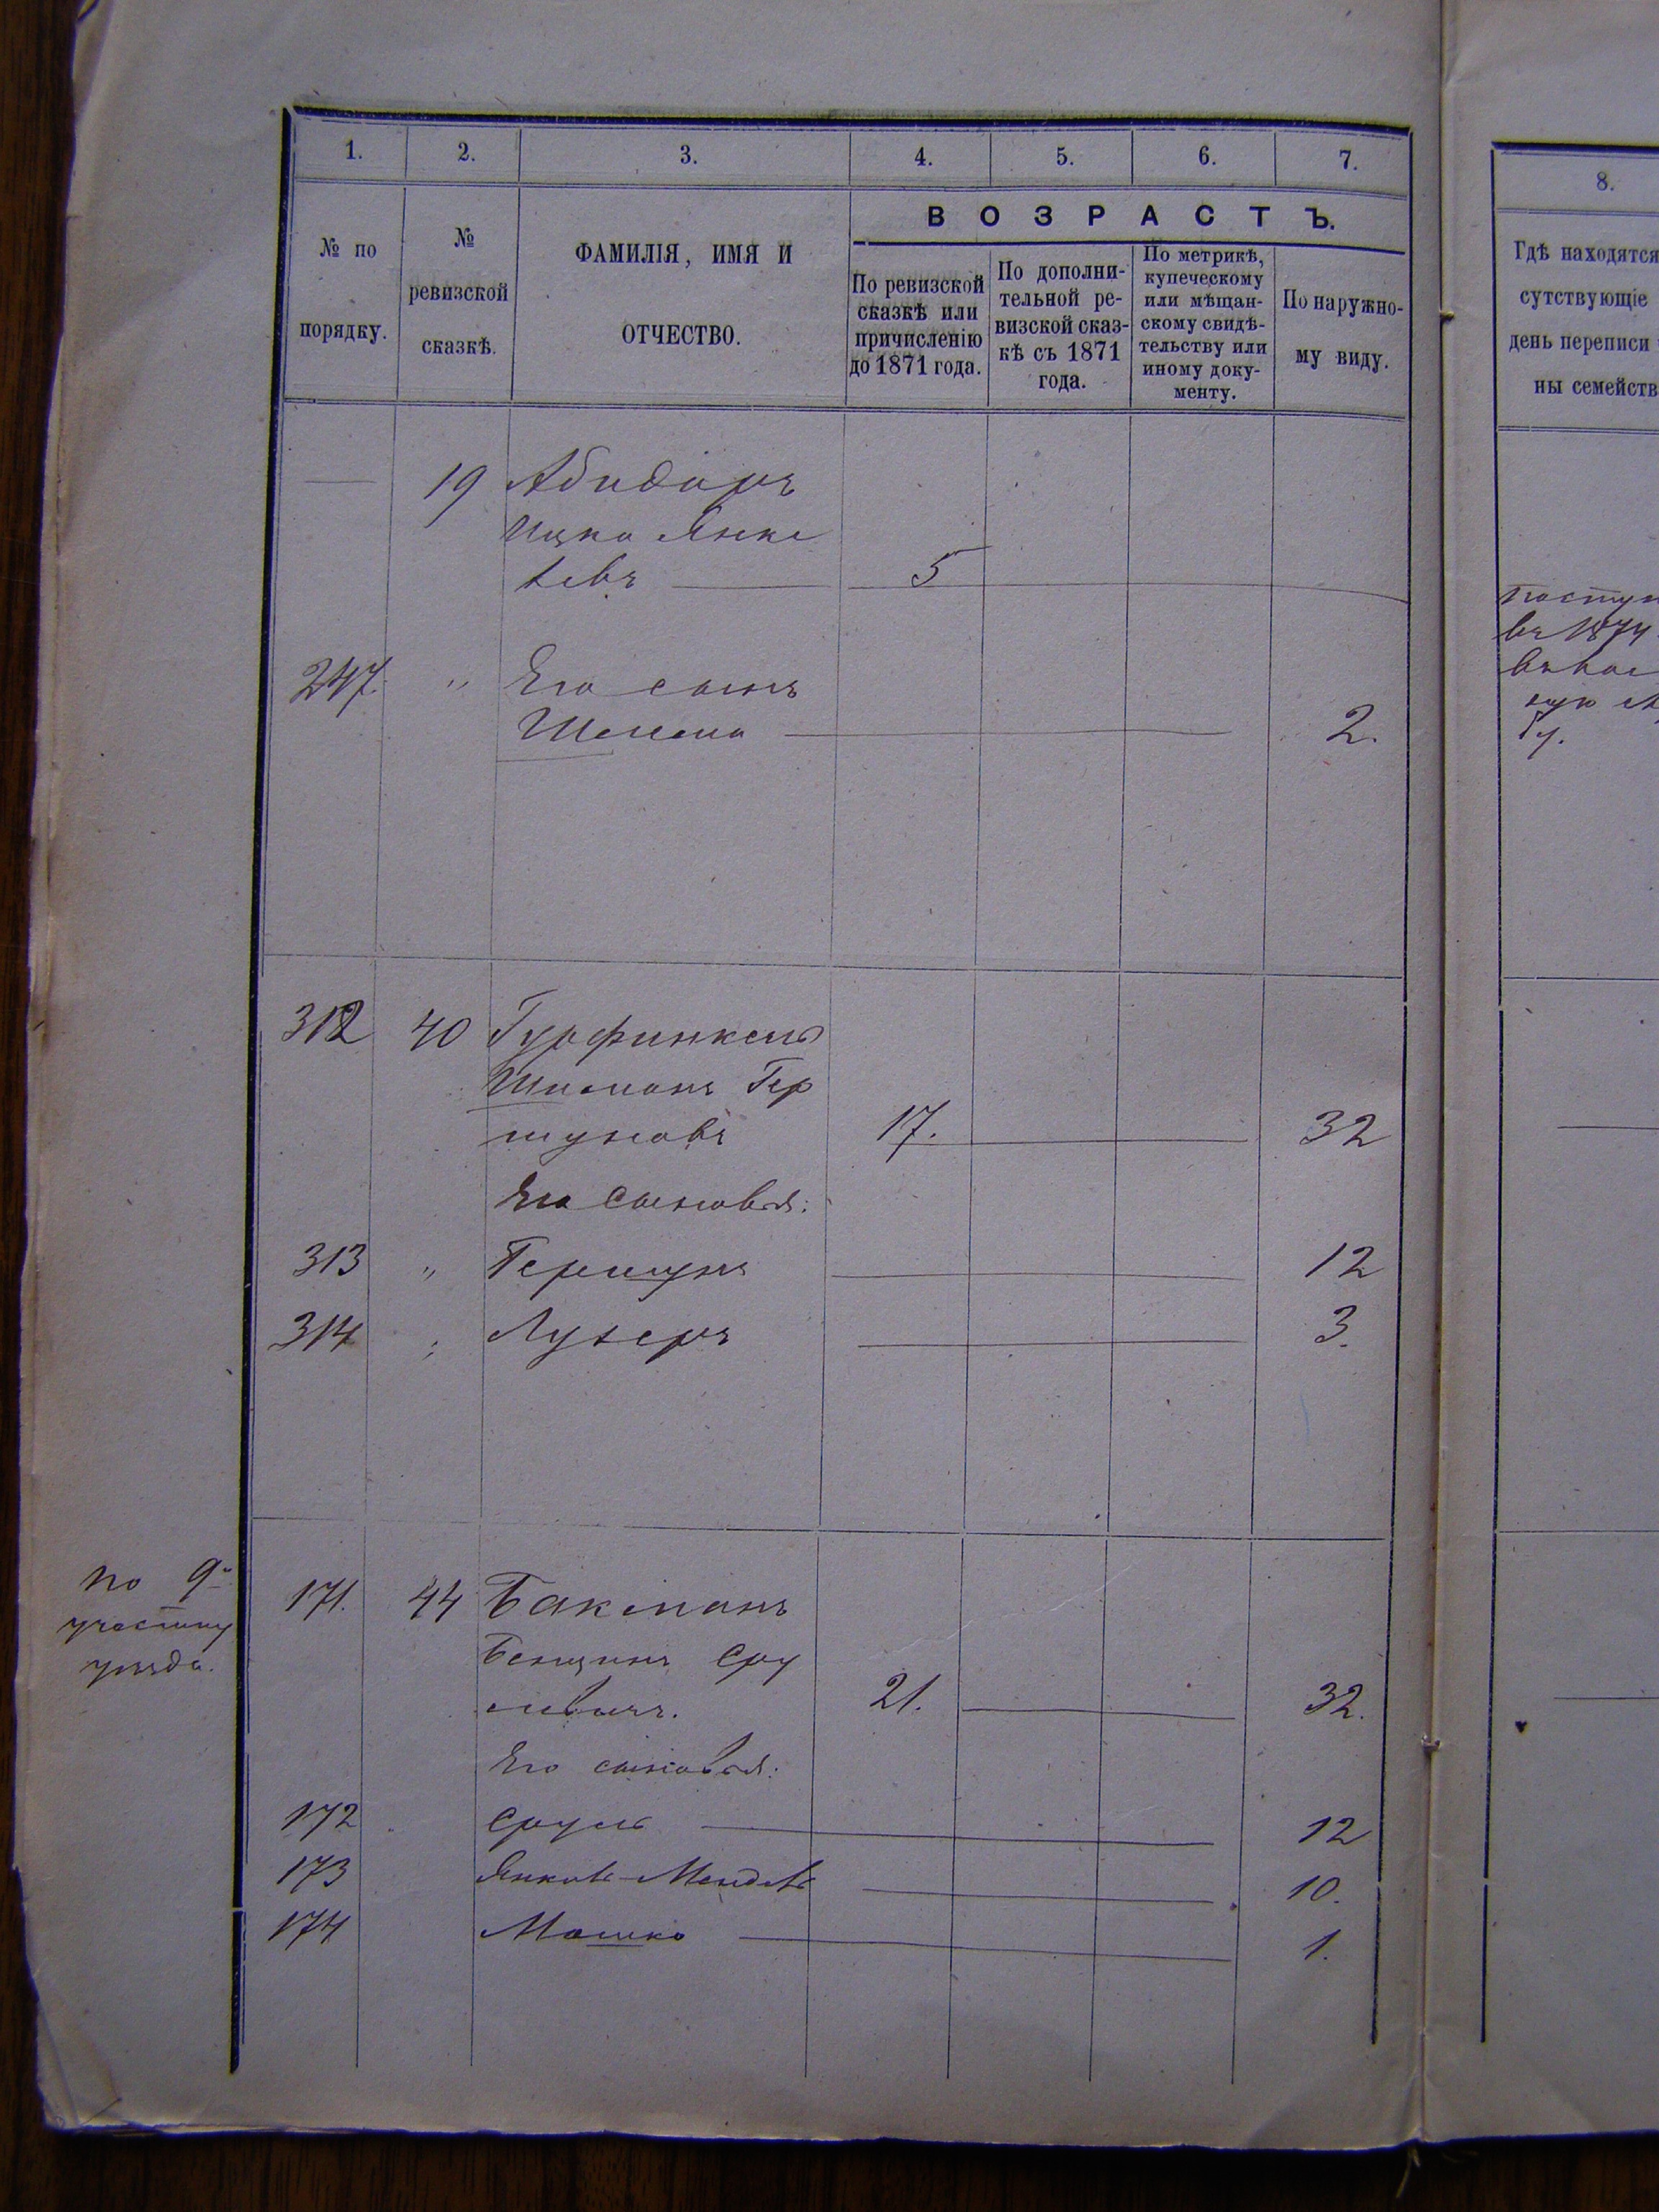 1. 2. 3. 4. 5. 6. 7. 8.
ВОЗРАСТЪ.
№ по порядку.
№ ревизской сказкѣ.
ФАМИЛІЯ, ИМЯ И ОТЧЕСТВО.
По ревизской сказкѣ или причисленію до 1871 года.
По дополни-
тельной ре-
визской сказ-
кѣ съ 1871
года.
По метрикѣ,
купеческому
или мѣщан-
скому свидѣ-
тельству или
иному доку-
менту.
По наружно-
му виду.
Гдѣ находятся
сутствующіе
день переписи
ны семейств
19 Абидоръ
Ицко Янке
левъ 5
247. " Его сынъ
Шелема 2.
въ 1874
312 40 Гурфинкель
Шилманъ Гер
шуновъ 17. 32
Его сыновья:
313 " Гершунъ 12
314 " Лузеръ 3.
по 9м
участку
уѣзда.
171. 44 Бакманъ
Бенционъ Сру
левичъ. 21. 32.
Его сыновья:
172 Сруль 12
173 Янкель-Мендель 10.
174 Мошко 1.